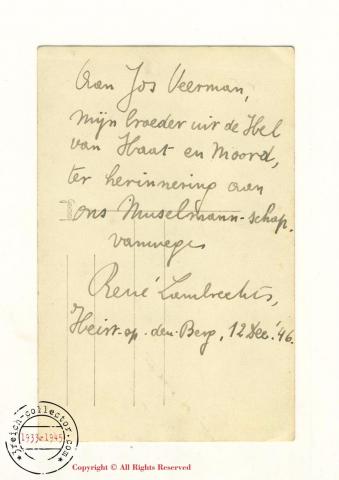 Aan Jos Veerman,
mijn broeder uit de Hel
van Haat en Moord,
ter herinnering aan
ons Muselmann-schap.
vanwege
René Lambrechts,
Heist-op-den-Berg, 12 Dec. '46.
3reich-collector.com
1933-1945
Copyright © All Rights Reserved